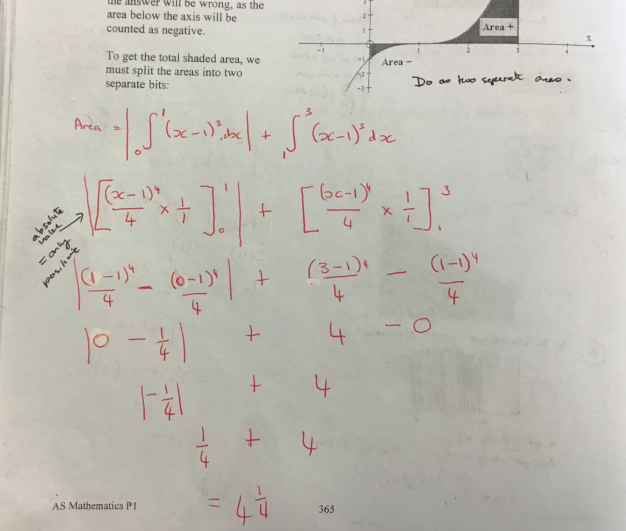 the answer will be wrong, as the
area below the axis will be
counted as negative.
To get the total shaded area, we
must split the areas into two
separate bits:
2
1
-1
1
2
3
4
x
-1
Area +
Area −
Do as two separate areas.
Area = |₀∫¹(x−1)³dx| + ₁∫³(x−1)³dx
|[(x−1)⁴/4 × 1/1]₀¹| + [(x−1)⁴/4 × 1/1]₁³
absolute
value
= only
positive
|(1−1)⁴/4 − (0−1)⁴/4| + (3−1)⁴/4 − (1−1)⁴/4
|0 − 1/4| + 4 − 0
|−1/4| + 4
1/4 + 4
= 4 1/4
AS Mathematics P1
365